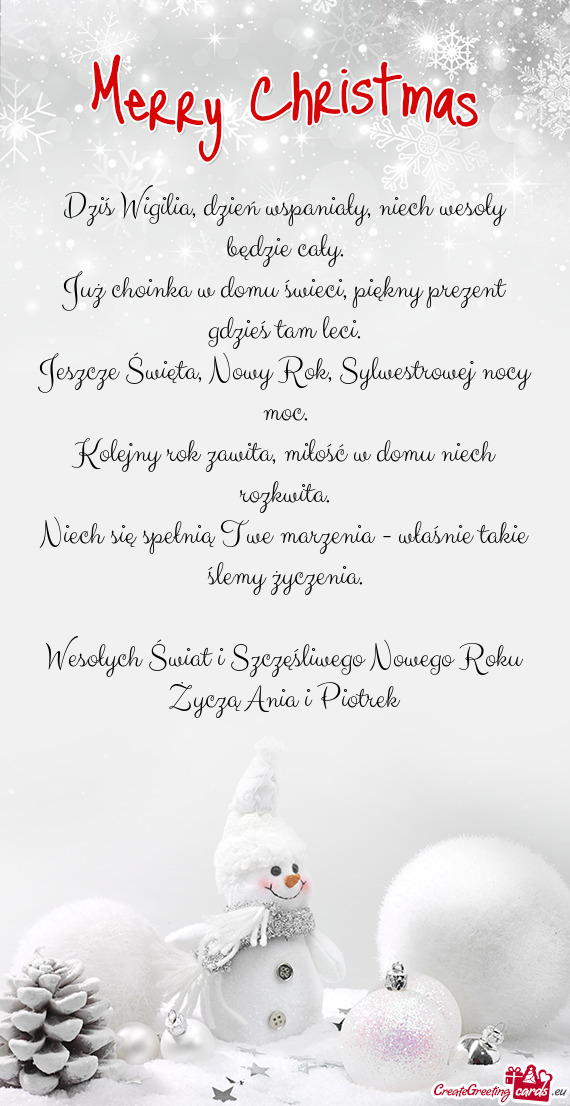 Merry Christmas
Dziś Wigilia, dzień wspaniały, niech wesoły
będzie cały.
Już choinka w domu świeci, piękny prezent
gdzieś tam leci.
Jeszcze Święta, Nowy Rok, Sylwestrowej nocy
moc.
Kolejny rok zawita, miłość w domu niech
rozkwita.
Niech się spełnią Twe marzenia - właśnie takie
ślemy życzenia.
Wesołych Świat i Szczęśliwego Nowego Roku
Życzą Ania i Piotrek
CreateGreetingcards.eu